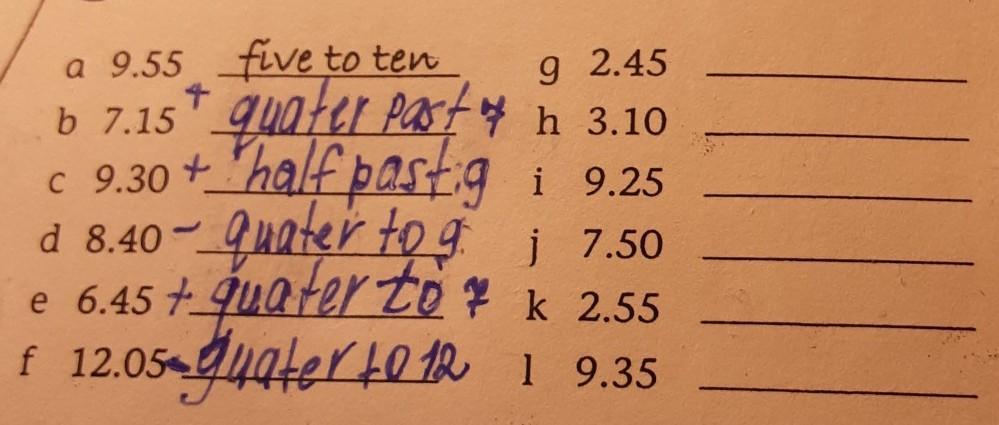 a 9.55 five to ten
b 7.15 + quater past 7
c 9.30 + half past 9
d 8.40 - quater to 9
e 6.45 + quater to 7
f 12.05 - quater to 12
g 2.45
h 3.10
i 9.25
j 7.50
k 2.55
l 9.35